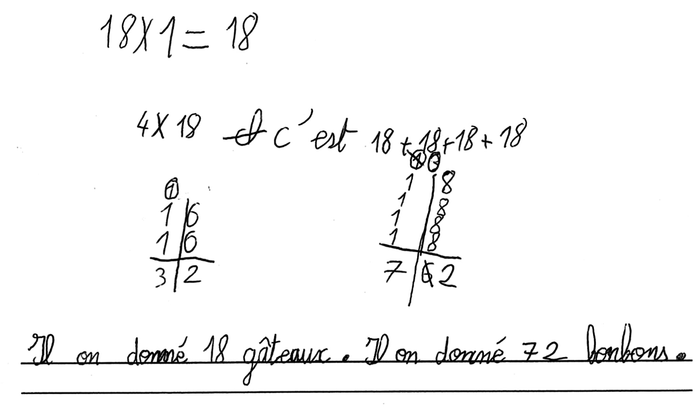 18X1=18
4X18 c'est 18+18+18+18
1
16
16
32
18
18
18
18
72
Il on donné 18 gâteaux. Il on donné 72 bonbons.